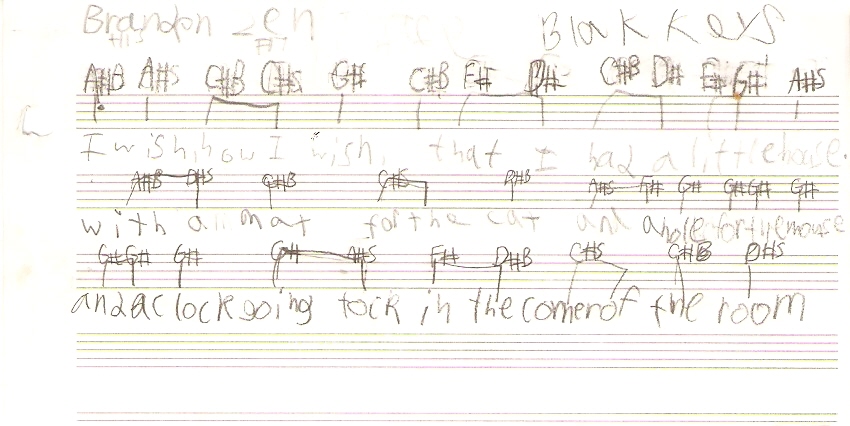 Brandon Blak Keys
A#B A#S C#B C#S G# C#B F# D# C#B D# F# G# A#S
I wish, how I wish, that I had a little house.
A#B D#S C#B C#S D#B A#S F# G# G# G# G#
with a mat for the cat and a hole for the mouse
G# G# G# G# A#S F# D#B C#S C#B D#S
and a clock going tock in the corner of the room